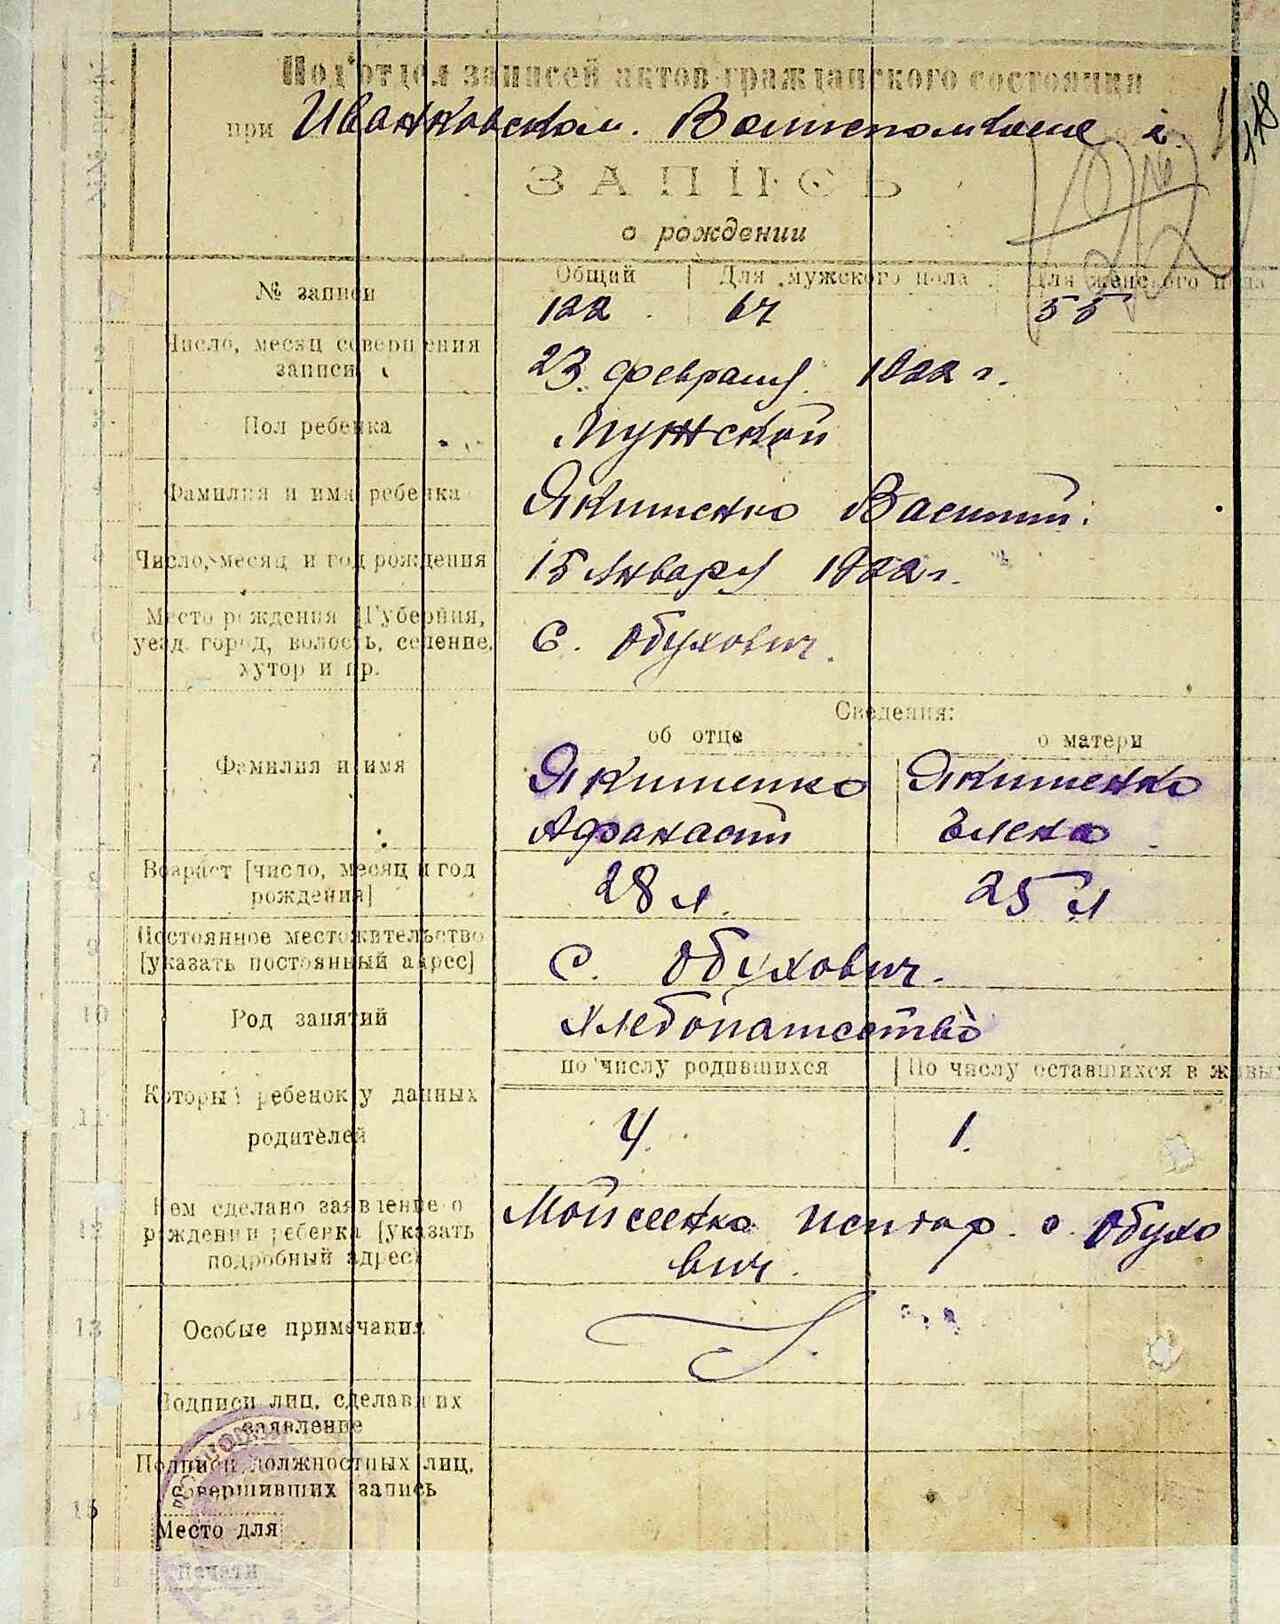 Под'отдел записей актов гражданского состояния
при Иванковском. Волисполкоме
118
ЗАПИСЬ
о рождении
№ записи
Общий | Для мужского пола | Для женского пола
122 67 55
2 Число, месяц совершения
записи
23 февраля 1922 г.
3 Пол ребенка
Мужской
4 Фамилия и имя ребенка
Якименко Василий.
5 Число, месяц и год рождения
15 Января 1922 г.
6 Место рождения [Губерния,
уезд, город, волость, селение,
хутор и пр.
С. Обухович.
Сведения:
об отце
о матери
7 Фамилия и имя
Якименко Якименко
Афанасий Елена
8 Возраст [число, месяц и год
рождения]
28 л. 25 л
9 Постоянное местожительство
[указать постоянный адрес]
С. Обухович.
10 Род занятий
Хлебопашество
по числу родившихся | По числу оставшихся в живых
11 Который ребенок у данных
родителей
4. 1.
12 Кем сделано заявление о
рождении ребенка [указать
подробный адрес]
Мойсеенко с. Обухо
вич.
13 Особые примечания
14 Подписи лиц, сделавших
заявление
Подписи должностных лиц,
совершивших запись
15
Место для
печати